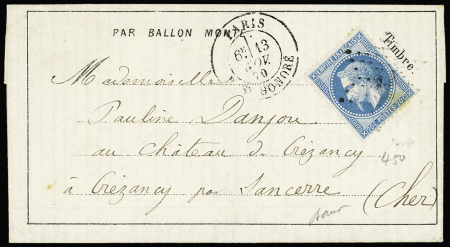 PAR BALLON MONTÉ
PARIS
6E 13
NOV.
70
HONORÉ
Timbre.
EMPIRE FRANÇAIS
Mademoiselle
Pauline Danjou
au Château de Crézancy
450
à Crézancy par Sancerre (Cher)